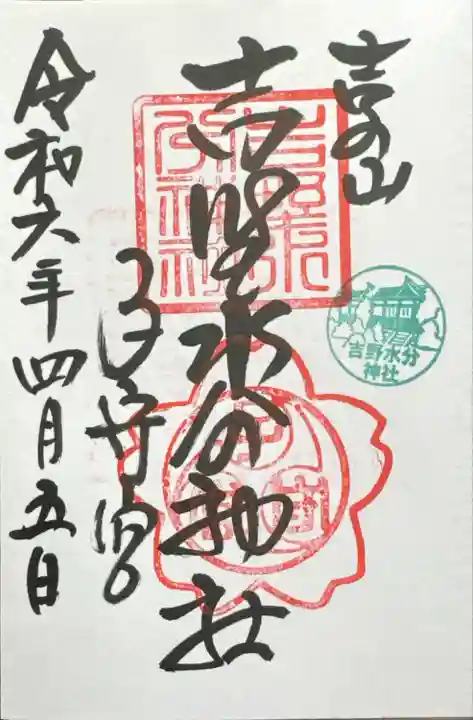 吉の山
吉野水分神社
子守宮
令和六年四月五日
吉野水分神社
吉野水分神社